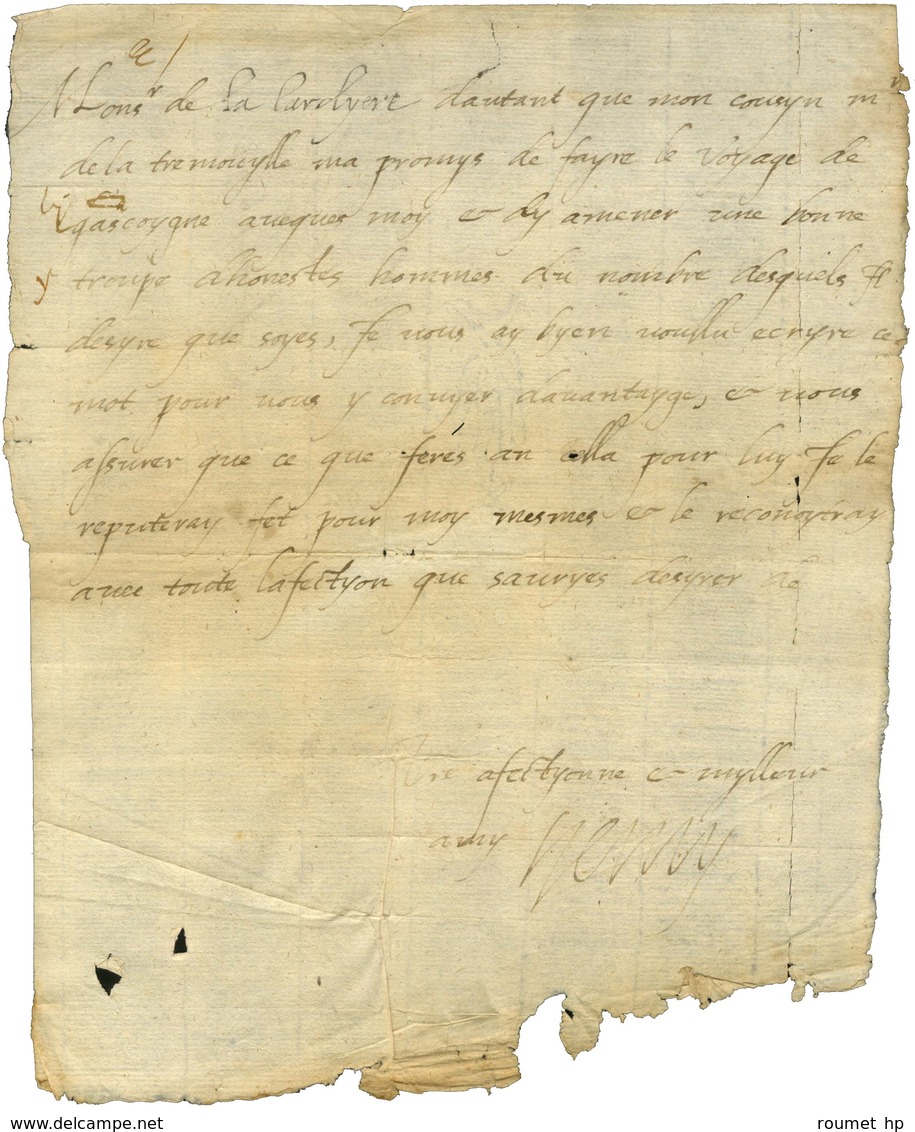 Monsr de la Cardyere dautant que mon cousyn mr
de la tremouylle ma promys de fayre le voyage de
gascoygne aveques moy & dy amener une bonne
troupe dhonestes hommes du nombre desquels Je
desyre que soyes, Je vous ay byen voullu ecryre ce
mot pour vous y convyer davantayge, & vous
assurer que ce que ferés an cella pour luy Je le
reputeray fet pour moy mesmes & le reconoytray
avec toute lafectyon que sauryes desyrer de
Vre afectyonne & mylleur
amy Henry
roumet hp